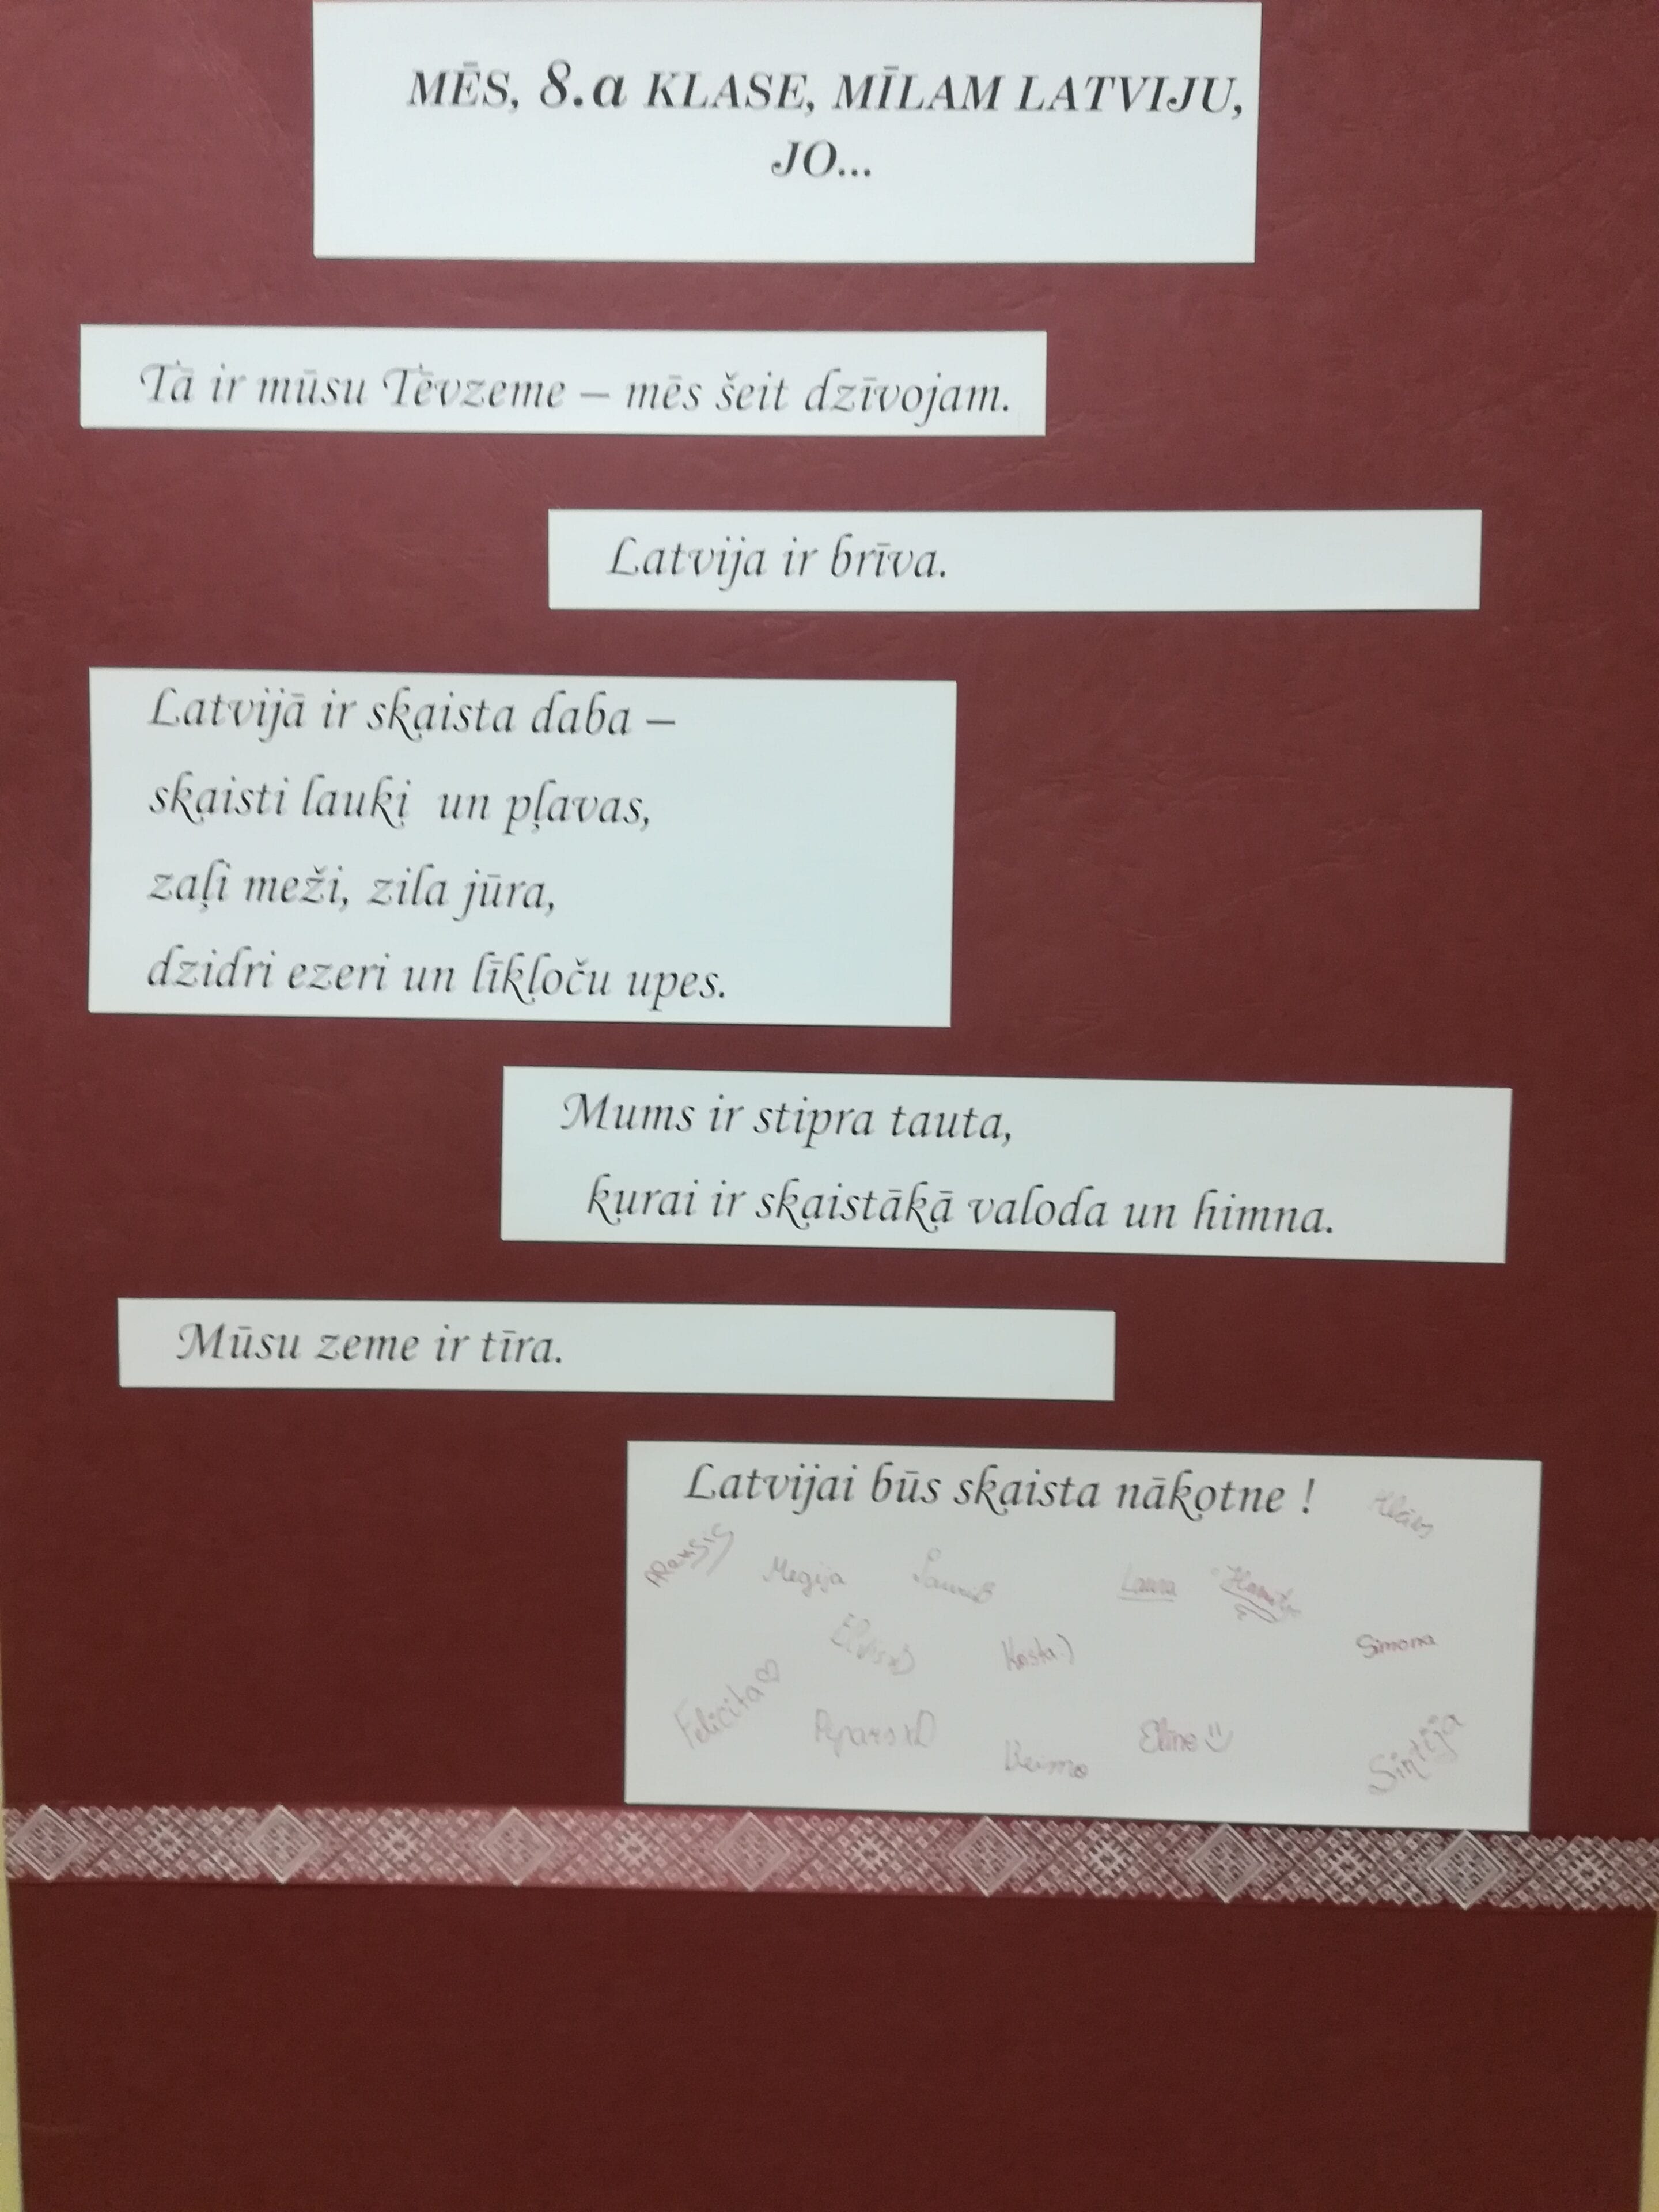 MĒS, 8.a KLASE, MĪLAM LATVIJU,
JO...
Tā ir mūsu Tēvzeme – mēs šeit dzīvojam.
Latvija ir brīva.
Latvijā ir skaista daba –
skaisti lauki un pļavas,
zaļi meži, zila jūra,
dzidri ezeri un līkloču upes.
Mums ir stipra tauta,
kurai ir skaistākā valoda un himna.
Mūsu zeme ir tīra.
Latvijai būs skaista nākotne !
Megija
Laura
Simona
Felicita ♡
Elīna
Sintija